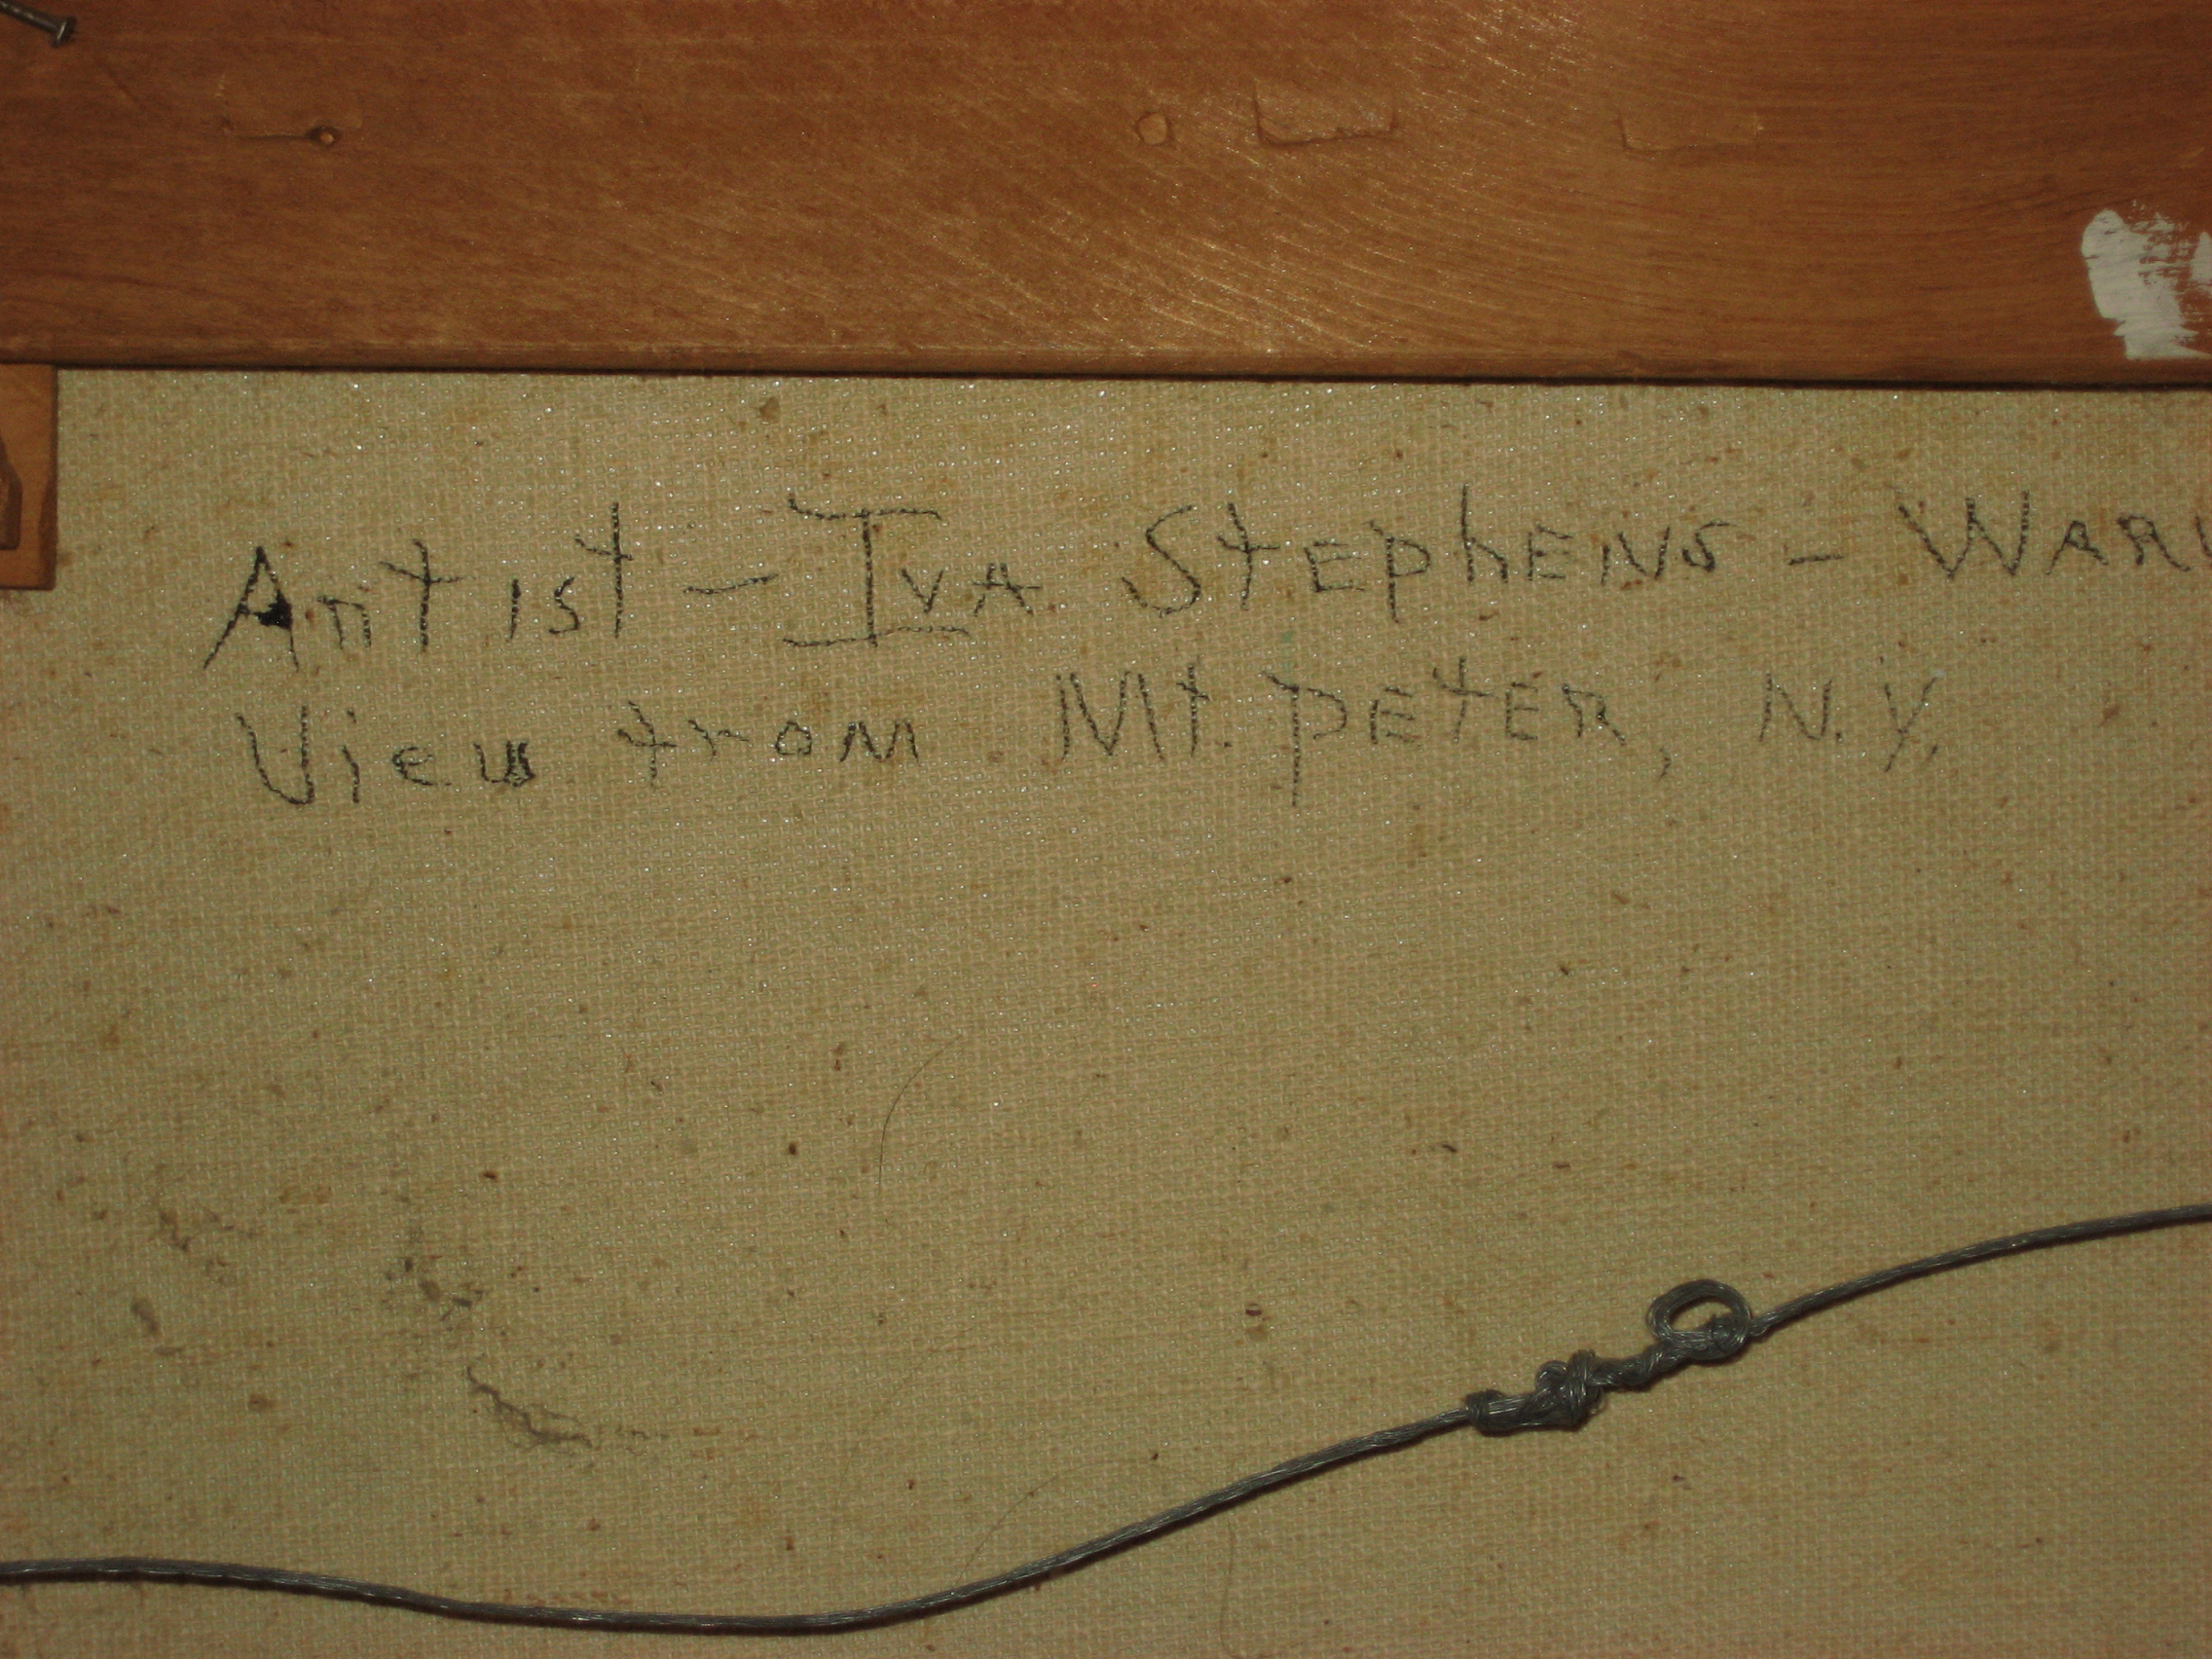 Artist - Iva Stephens -
View from Mt. Peter, N.Y.